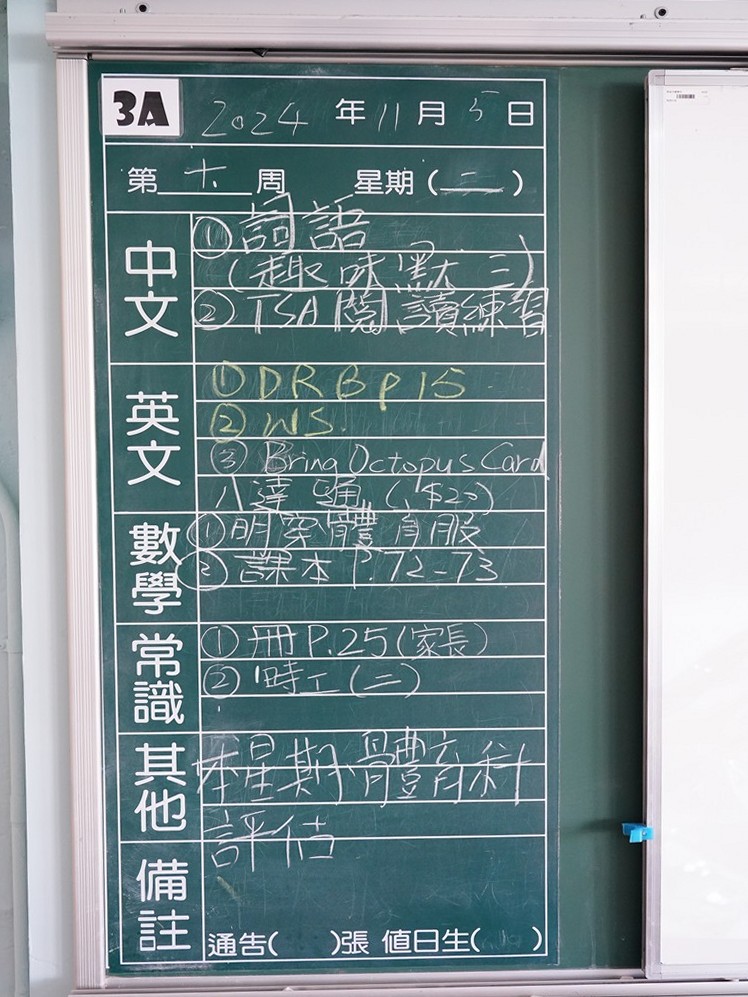 3A 2024 年 11 月 5 日
第 十 周 星期 (二)
中文
① 詞語
(趣味默三)
② TSA 閱讀練習
英文
① DRB p15
② WS.
③ Bring Octopus Card
八達通 ($20)
數學
① 明穿體育服
② 課本 P.72-73
常識
① 冊 P.25 (家長)
② 時工 (二)
其他
本星期體育科
評估
備註
通告( )張 值日生( )